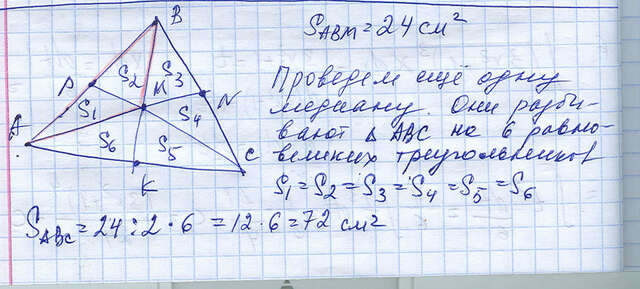 B
S₂
S₃
P
M
N
S₁
S₄
A
S₆
S₅
C
K
S_ABM = 24 см²
Проведем ещё одну
медиану. Они разби-
вают Δ ABC на 6 равно-
великих треугольников
S₁ = S₂ = S₃ = S₄ = S₅ = S₆
S_ABC = 24 : 2 · 6 = 12 · 6 = 72 см²